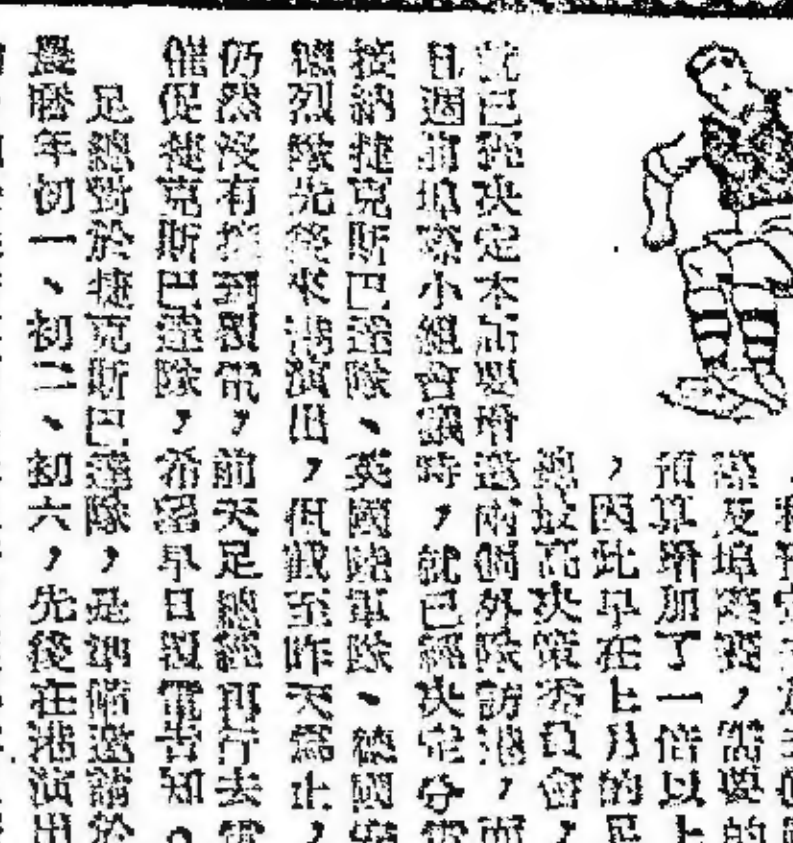 際及埠際賽，需要的
預算增加了一倍以上
，因此早在上月的足
總最高決策委員會，
就已經決定本屆要增邀兩個外隊訪港，而
且週前埠際小組會議時，就已經決定分電
接納捷克斯巴達隊、英國陸軍隊、德國
烈隊先後來港演出，但截至昨天為止，
仍然沒有接到覆電，前天足總經再行去電
催促捷克斯巴達隊，希望早日覆電告知。
足總對於捷克斯巴達隊，是準備邀請於
農曆年初一、初二、初六，先後在港演出